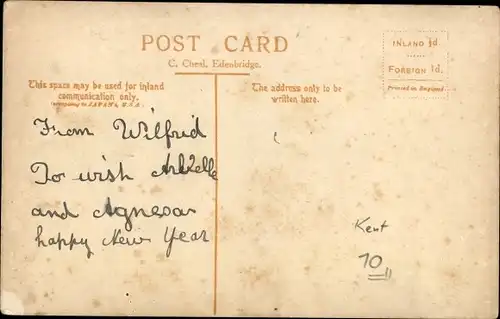 POST CARD
C. Chesl. Edenbridge.
INLAND ½d.
FOREIGN 1d.
Printed in England
This space may be used for inland
communication only.
The address only to be
written here.
From Wilfrid
To wish
and Agnes a
happy New Year
Kent
10